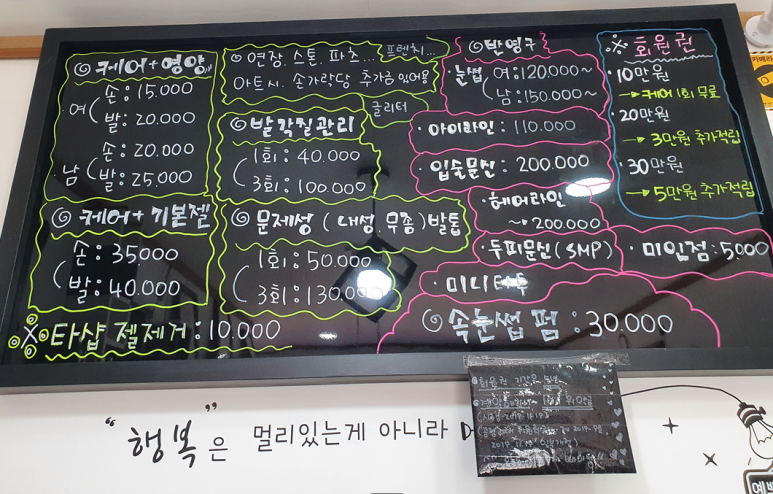 ◎ 케어+영양
여 손: 15.000
발: 20.000
·남 손: 20.000
발: 25.000
◎ 케어+기본젤
손: 35000
발: 40.000
※ 타샵 젤제거: 10,000
◎ 연장. 스톤. 파츠... 프렌치...
아트시. 손가락당 추가금 있어용
글리터
◎ 발각질관리
1회: 40.000
3회: 100.000
◎ 문제성 (내성. 무좀) 발톱
1회: 50.000
3회: 130.000
◎ 반영구
·눈썹 여: 120.000~
남: 150.000~
·아이라인: 110.000
·입술문신: 200.000
·헤어라인
~200.000
·두피문신(SMP)
·미인점: 5,000
·미니
◎ 속눈썹 펌: 30.000
※ 회원권
·10만원
→ 케어 1회 무료
·20만원
→ 3만원 추가적립
·30만원
→ 5만원 추가적립
회원권
"행복"은 멀리있는게 아니라
카메라
예뻐